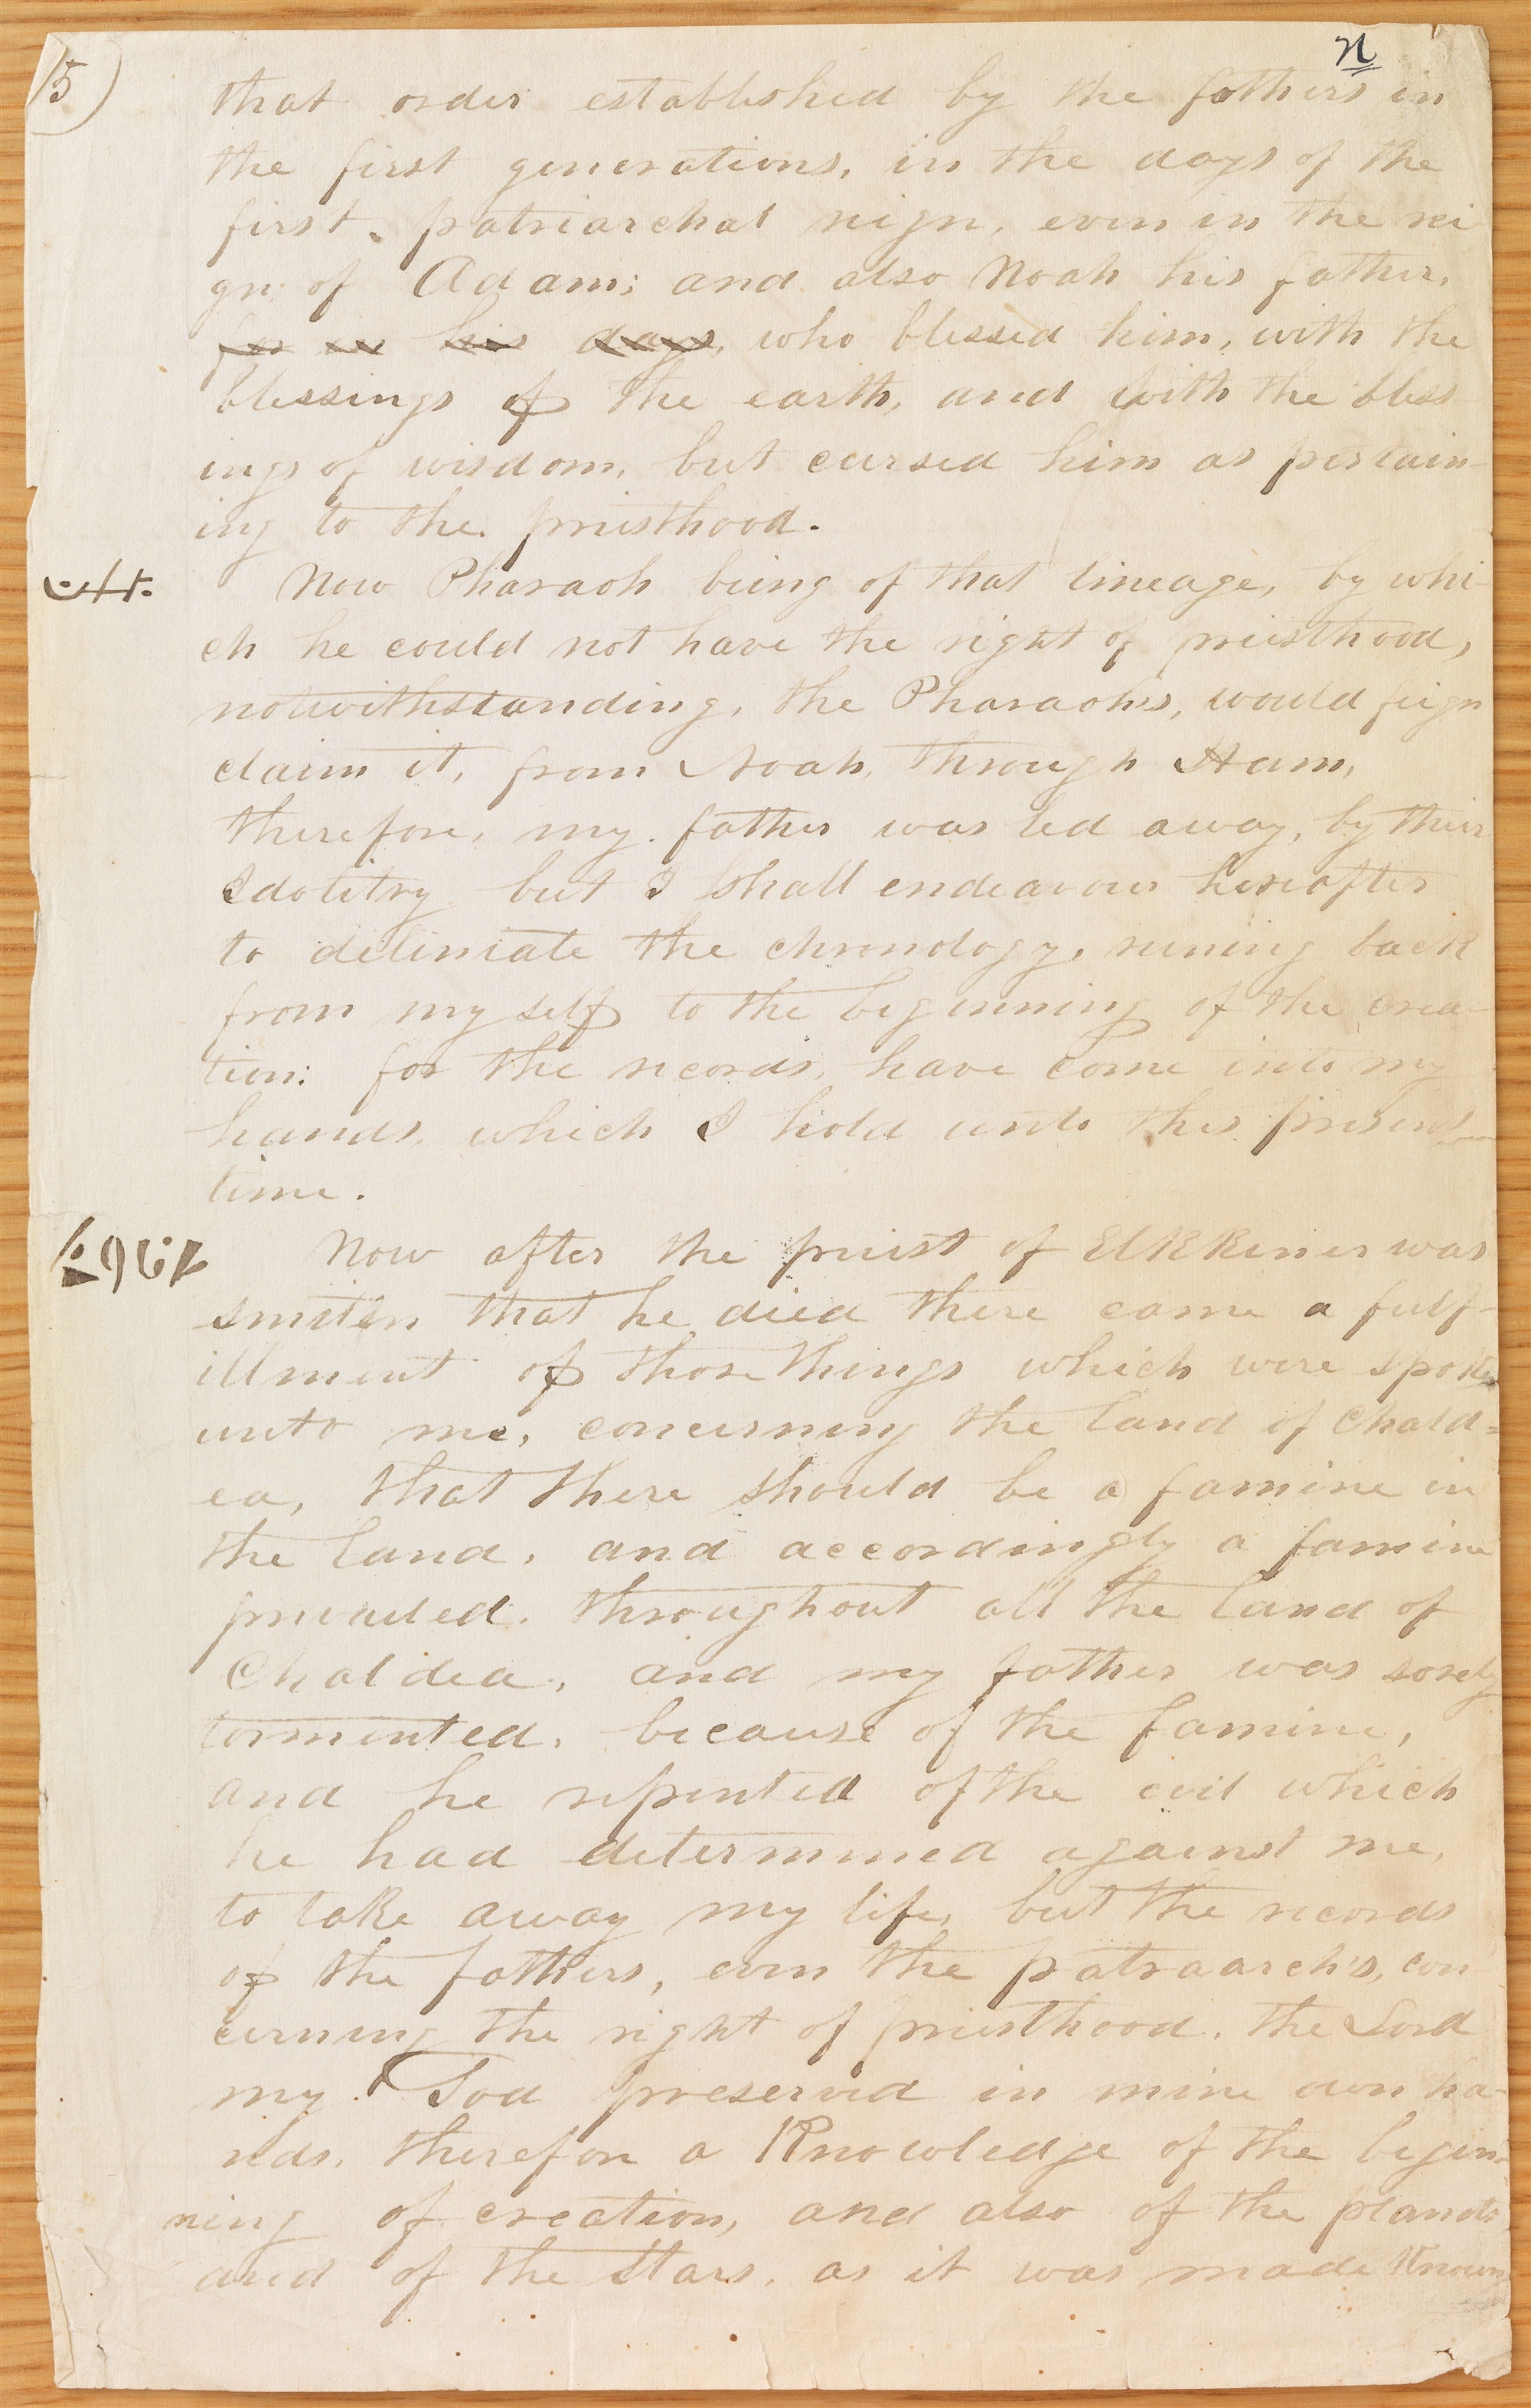 5)
n
that order established by the fathers in
the first generations, in the days of the
first patriarchal reign, even in the rei-
gn of Adam; and also Noah his father,
for in his days, who blessed him, with the
blessings of the earth, and with the bless-
ings of wisdom, but cursed him as pertain-
ing to the priesthood.
Now Pharaoh being of that lineage, by whi-
ch he could not have the right of priesthood,
notwithstanding, the Pharaoh's, would feign
claim it, from Noah, through Ham,
therefore, my father was led away, by their
Idolitry but I shall endeavour hereafter
to deliniate the chronology, runing back
from my self to the beginning of the crea-
tion: for the records, have come into my
hands, which I hold unto this present
time.
Now after the priest of Elkkener was
smitten that he died there came a fulf-
illment of those things which were spoken
unto me, concerning the land of Chald=
ea, that there should be a famine in
the land, and accordingly a famine
prevailed throughout all the land of
Chaldea, and my father was sorely
tormented, because of the famine,
and he repented of the evil which
he had determined against me,
to take away my life, but the records
of the fathers, even the patraarch's, con-
cerning the right of priesthood, the Lord
my God preserved in mine own ha-
nds, therefore a Knowledge of the begin-
ning of creation, and also of the planets
and of the Stars, as it was made Known